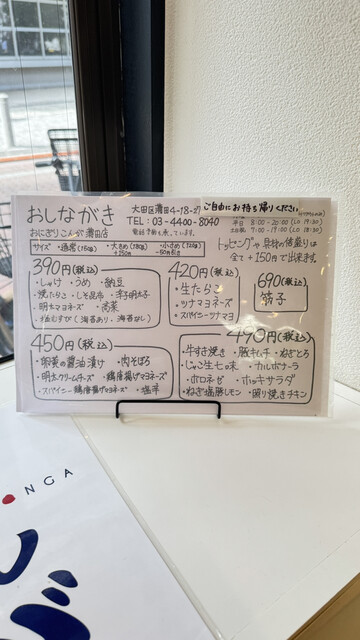 おしながき
大田区蒲田4-18-27
おにぎりこんが 蒲田店
TEL：03-4400-8040
ご自由にお持ち帰りください
平日 8:00-20:00 (LO 19:30)
土日祝 9:00-19:00 (LO 18:30)
サイズ ・通常(150g) ・大きめ ・小さめ
+150円 -50円引き
トッピングや具材の倍盛りは
全て+150円で出来ます。
390円(税込)
・しゃけ ・うめ ・納豆
・焼たらこ ・しそ昆布 ・辛子明太子
・明太マヨネーズ ・高菜
・塩むすび (海苔あり・海苔なし)
420円(税込)
・生たらこ
・ツナマヨネーズ
・スパイシーツナマヨ
690円(税込)
筋子
450円(税込)
・卵黄の醤油漬け ・肉そぼろ
・明太クリームチーズ ・鶏唐揚げマヨネーズ
・スパイシー鶏唐揚げマヨネーズ ・塩辛
490円(税込)
・牛すき焼き ・豚キムチ ・ねぎとろ
・じゃこ生七味 ・カルボナーラ
・ボロネーゼ ・ホッキサラダ
・ねぎ塩豚レモン ・照り焼きチキン
NGA